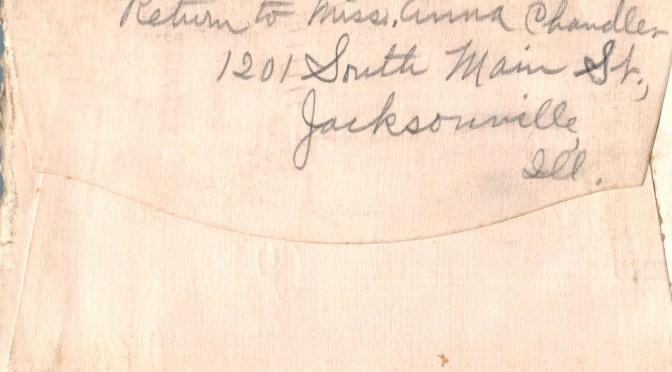 Return to Miss. Anna Chandler
1201 South Main St.,
Jacksonville,
Ill.